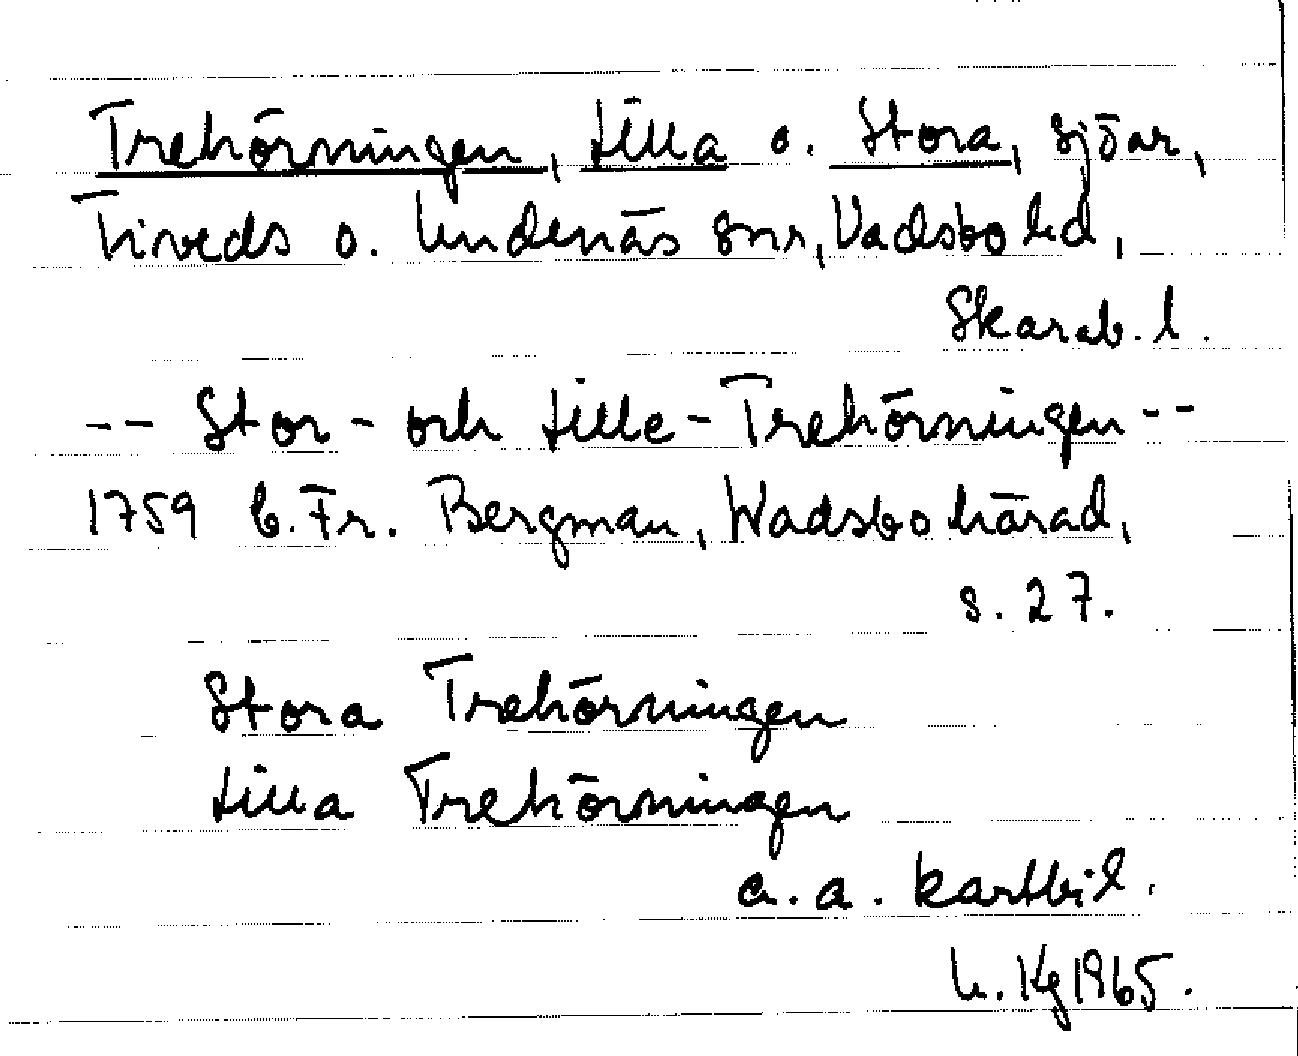 Trehörningen, Lilla o. Stora, sjöar,
Tiveds o. Undenäs snr, Vadsbo hd,
Skarab. l.
-- Stor- och Lille-Trehörningen --
1759 C. Fr. Bergman, Wadsbo härad,
s. 27.
Stora Trehörningen
Lilla Trehörningen
a. a. kartbil.
L. Kg 1965.